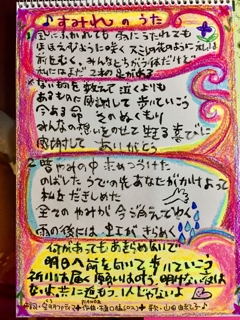 ♪すみれのうた
1 どに ふかれても 雨にうたれても
ほほえむように咲く スミレの花のように 私は
前をむく、みんなとちがう体だけど
私にはまだ2本の足がある
※ない物を数えて泣くよりも
あるものに感謝して 歩いていこう
今ある命 ぬくもり
みんなの想いをのせて 生きる喜びに
感謝して ありがとう
2 暗やみの中 求めつづけた
のばした うでの先 あなたがかけよって
私をだきしめた
全てのやみが 今 消えてゆく
雨の後には 虹がきらめく
何があってもあきらめないで
明日へ前を向いて 歩いていこう
祈りは届く 海よりも 明けない夜は
ない、共に進もう 1人じゃないよ